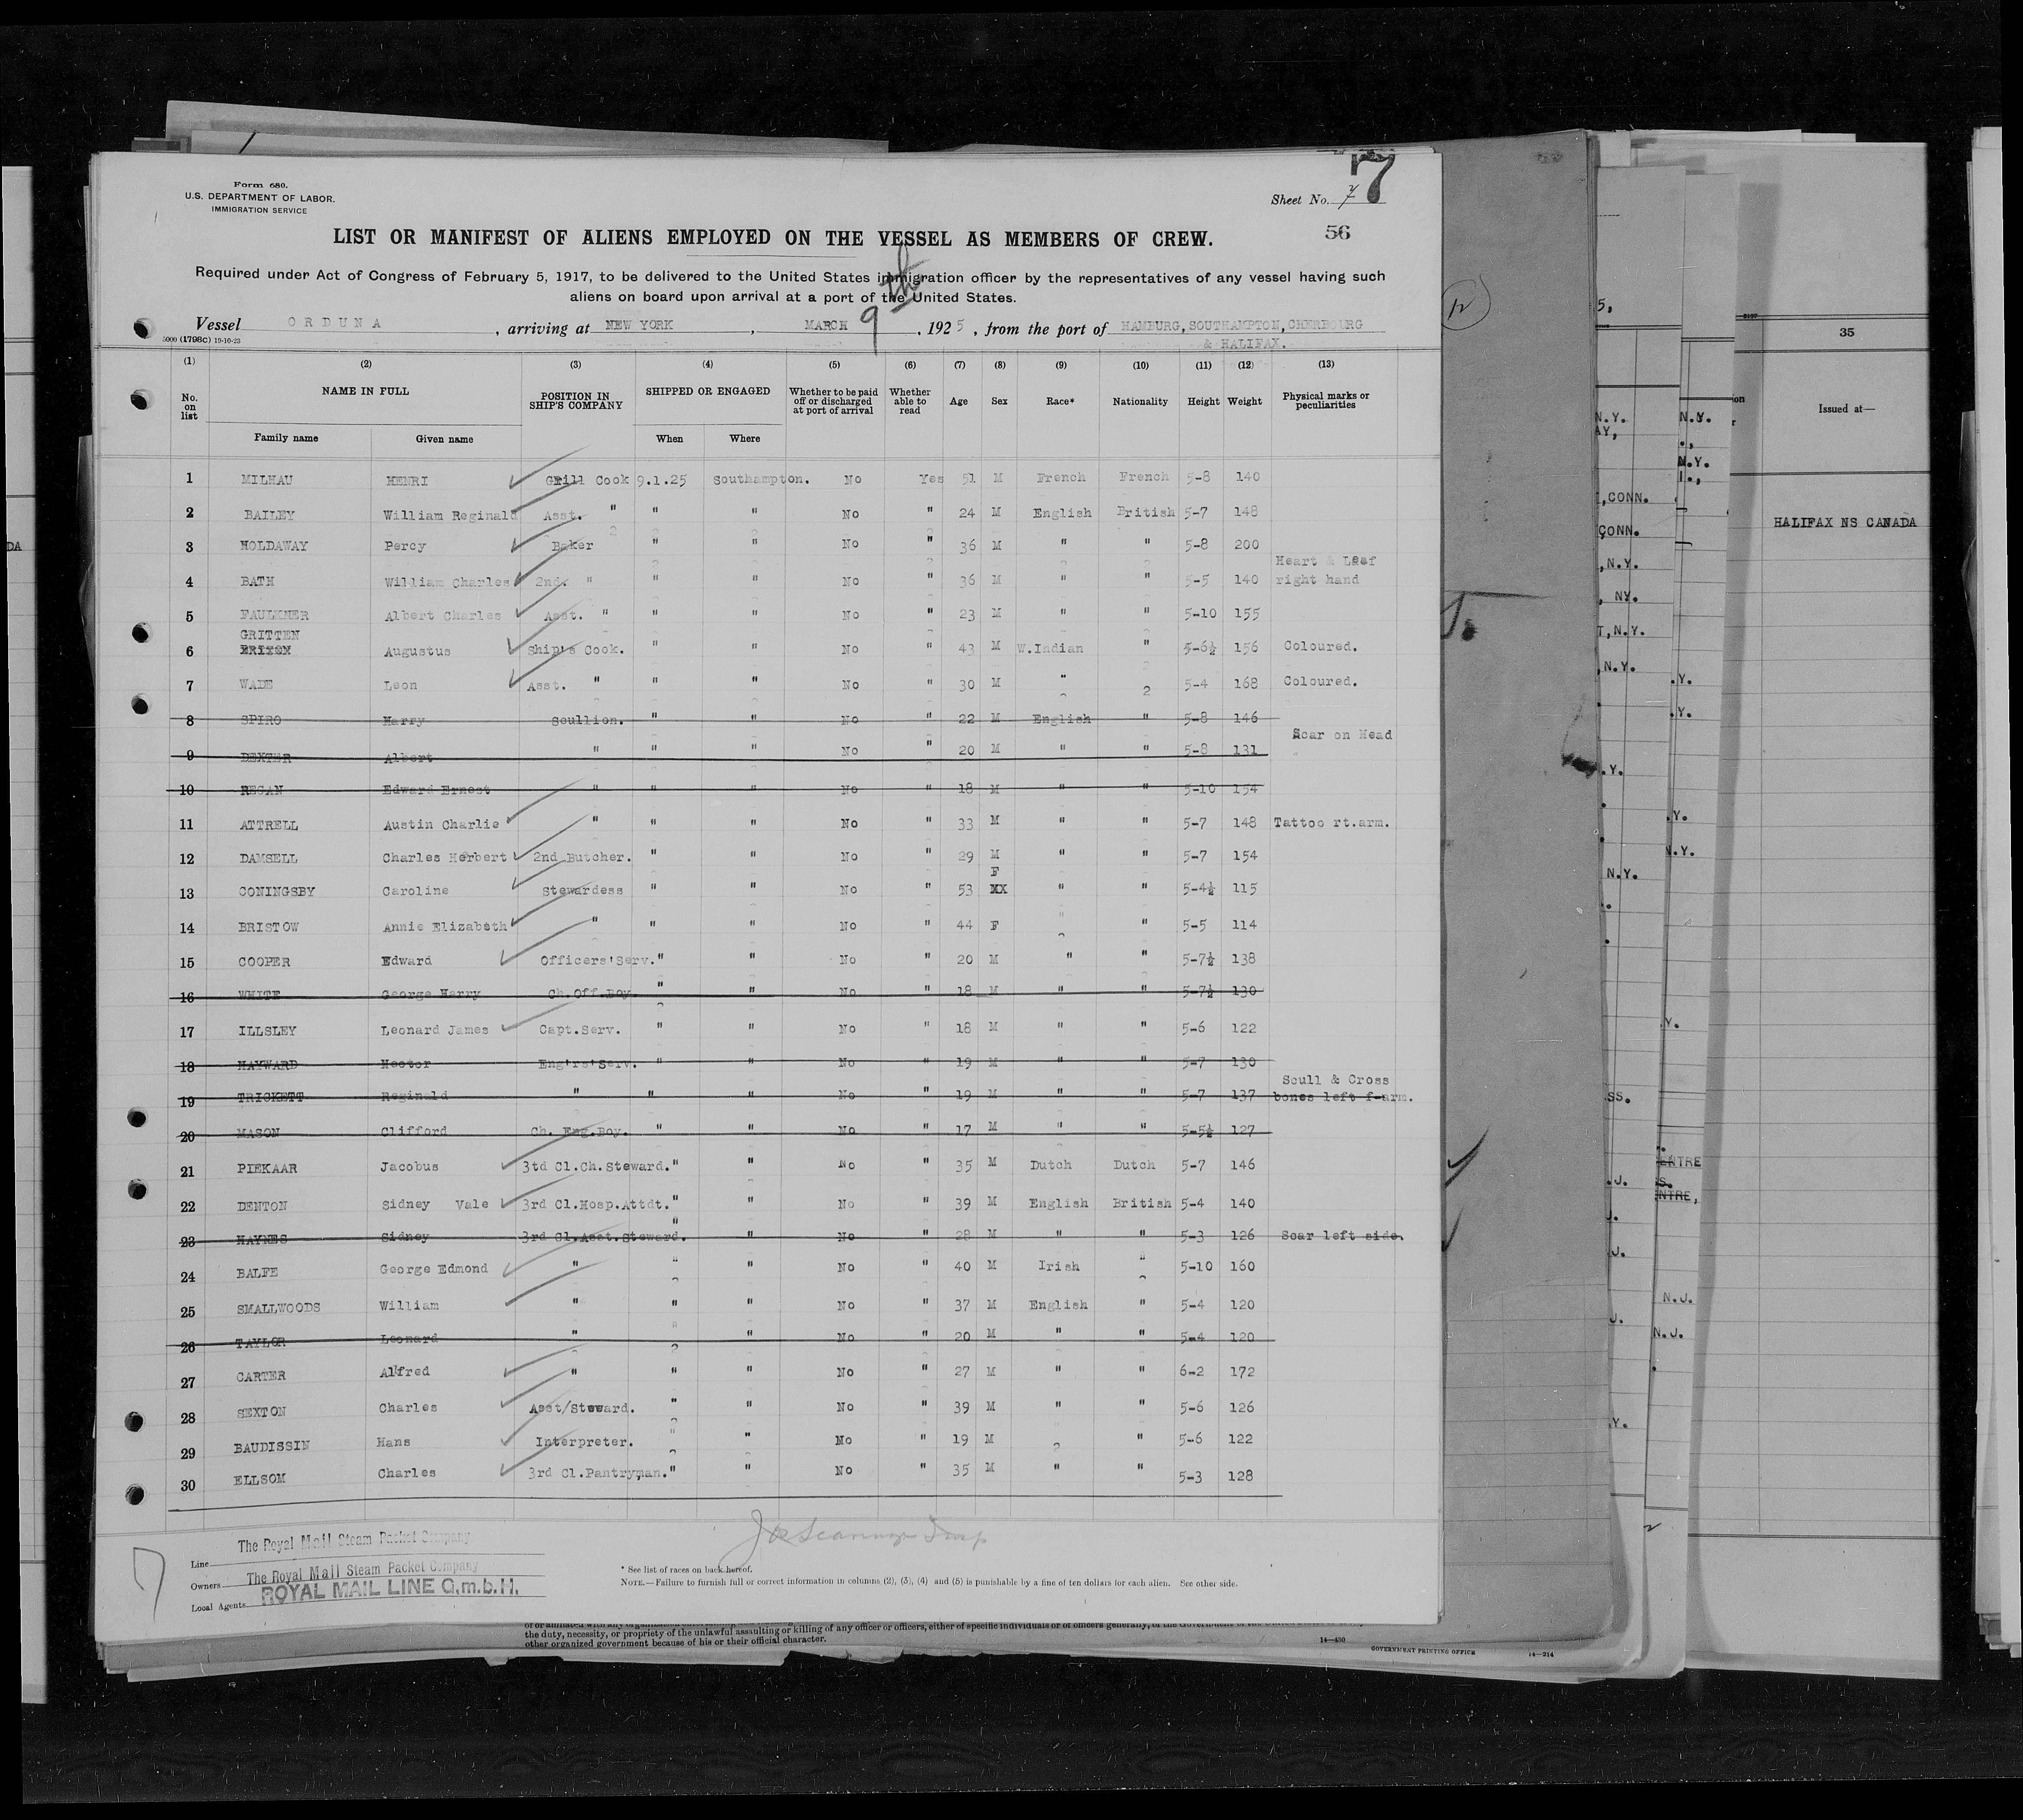 Form 680.
U.S. DEPARTMENT OF LABOR.
IMMIGRATION SERVICE
Sheet No. 7
7
56
LIST OR MANIFEST OF ALIENS EMPLOYED ON THE VESSEL AS MEMBERS OF CREW.
Required under Act of Congress of February 5, 1917, to be delivered to the United States immigration officer by the representatives of any vessel having such
aliens on board upon arrival at a port of the United States.
Vessel ORDUNA, arriving at NEW YORK, MARCH 9th, 1925, from the port of HAMBURG, SOUTHAMPTON, CHERBOURG
& HALIFAX.
5000 (1798c) 19-10-23
(1) (2) (3) (4) (5) (6) (7) (8) (9) (10) (11) (12) (13)
No. on list NAME IN FULL POSITION IN SHIP'S COMPANY SHIPPED OR ENGAGED Whether to be paid off or discharged at port of arrival Whether able to read Age Sex Race* Nationality Height Weight Physical marks or peculiarities
Family name Given name When Where
1 MILHAU HENRI Grill Cook 9.1.25 Southampton. No Yes 51 M French French 5-8 140
2 BAILEY William Reginald Asst. " " " No " 24 M English British 5-7 148
3 HOLDAWAY Percy Baker " " No " 36 M " " 5-8 200
4 BATH William Charles 2nd. " " " No " 36 M " " 5-5 140 Heart & Leaf right hand
5 FAULKNER Albert Charles Asst. " " " No " 23 M " " 5-10 155
GRITTEN
6 BRITON Augustus Ship's Cook. " " No " 43 M W.Indian " 5-6½ 156 Coloured.
7 WADE Leon Asst. " " " No " 30 M " " 5-4 168 Coloured.
8 SPIRO Harry Scullion. " " No " 22 M English " 5-8 146
9 DEXTER Albert " " " No " 20 M " " 5-8 131 Scar on Head
10 REGAN Edward Ernest " " " No " 18 M " " 5-10 154
11 ATTRELL Austin Charlie " " " No " 33 M " " 5-7 148 Tattoo rt.arm.
12 DAMSELL Charles Herbert 2nd Butcher. " " No " 29 M " " 5-7 154
13 CONINGSBY Caroline Stewardess " " No " 53 F XX " " 5-4½ 115
14 BRISTOW Annie Elizabeth " " " No " 44 F " " 5-5 114
15 COOPER Edward Officers'Serv. " " No " 20 M " " 5-7½ 138
16 WHITE George Harry Ch.Off.Boy. " " No " 18 M " " 5-7½ 130
17 ILLSLEY Leonard James Capt.Serv. " " No " 18 M " " 5-6 122
18 HAYWARD Hector Eng'rs'Serv. " " No " 19 M " " 5-7 130
19 TRICKETT Reginald " " " No " 19 M " " 5-7 137 Scull & Cross bones left f-arm.
20 MASON Clifford Ch. Eng.Boy. " " No " 17 M " " 5-5½ 127
21 PIEKAAR Jacobus 3td Cl.Ch.Steward. " " No " 35 M Dutch Dutch 5-7 146
22 DENTON Sidney Vale 3rd Cl.Hosp.Attdt. " " No " 39 M English British 5-4 140
23 HAYNES Sidney 3rd Cl.Asst.Steward. " " No " 28 M " " 5-3 126 Scar left side.
24 BALFE George Edmond " " " No " 40 M Irish " 5-10 160
25 SMALLWOODS William " " " No " 37 M English " 5-4 120
26 TAYLOR Leonard " " " No " 20 M " " 5-4 120
27 CARTER Alfred " " " No " 27 M " " 6-2 172
28 SEXTON Charles Asst/Steward. " " No " 39 M " " 5-6 126
29 BAUDISSIN Hans Interpreter. " " No " 19 M " 5-6 122
30 ELLSOM Charles 3rd Cl.Pantryman. " " No " 35 M " " 5-3 128
Line The Royal Mail Steam Packet Company
Owners The Royal Mail Steam Packet Company
Local Agents ROYAL MAIL LINE G.m.b.H.
* See list of races on back hereof.
NOTE.—Failure to furnish full or correct information in columns (2), (3), (4) and (5) is punishable by a fine of ten dollars for each alien. See other side.
the duty, necessity, or propriety of the unlawful assaulting or killing of any officer or officers, either of specific individuals or of officers generally, of the Government of the United States
other organized government because of his or their official character.
14—430
GOVERNMENT PRINTING OFFICE
14—214
35
Issued at—
HALIFAX NS CANADA